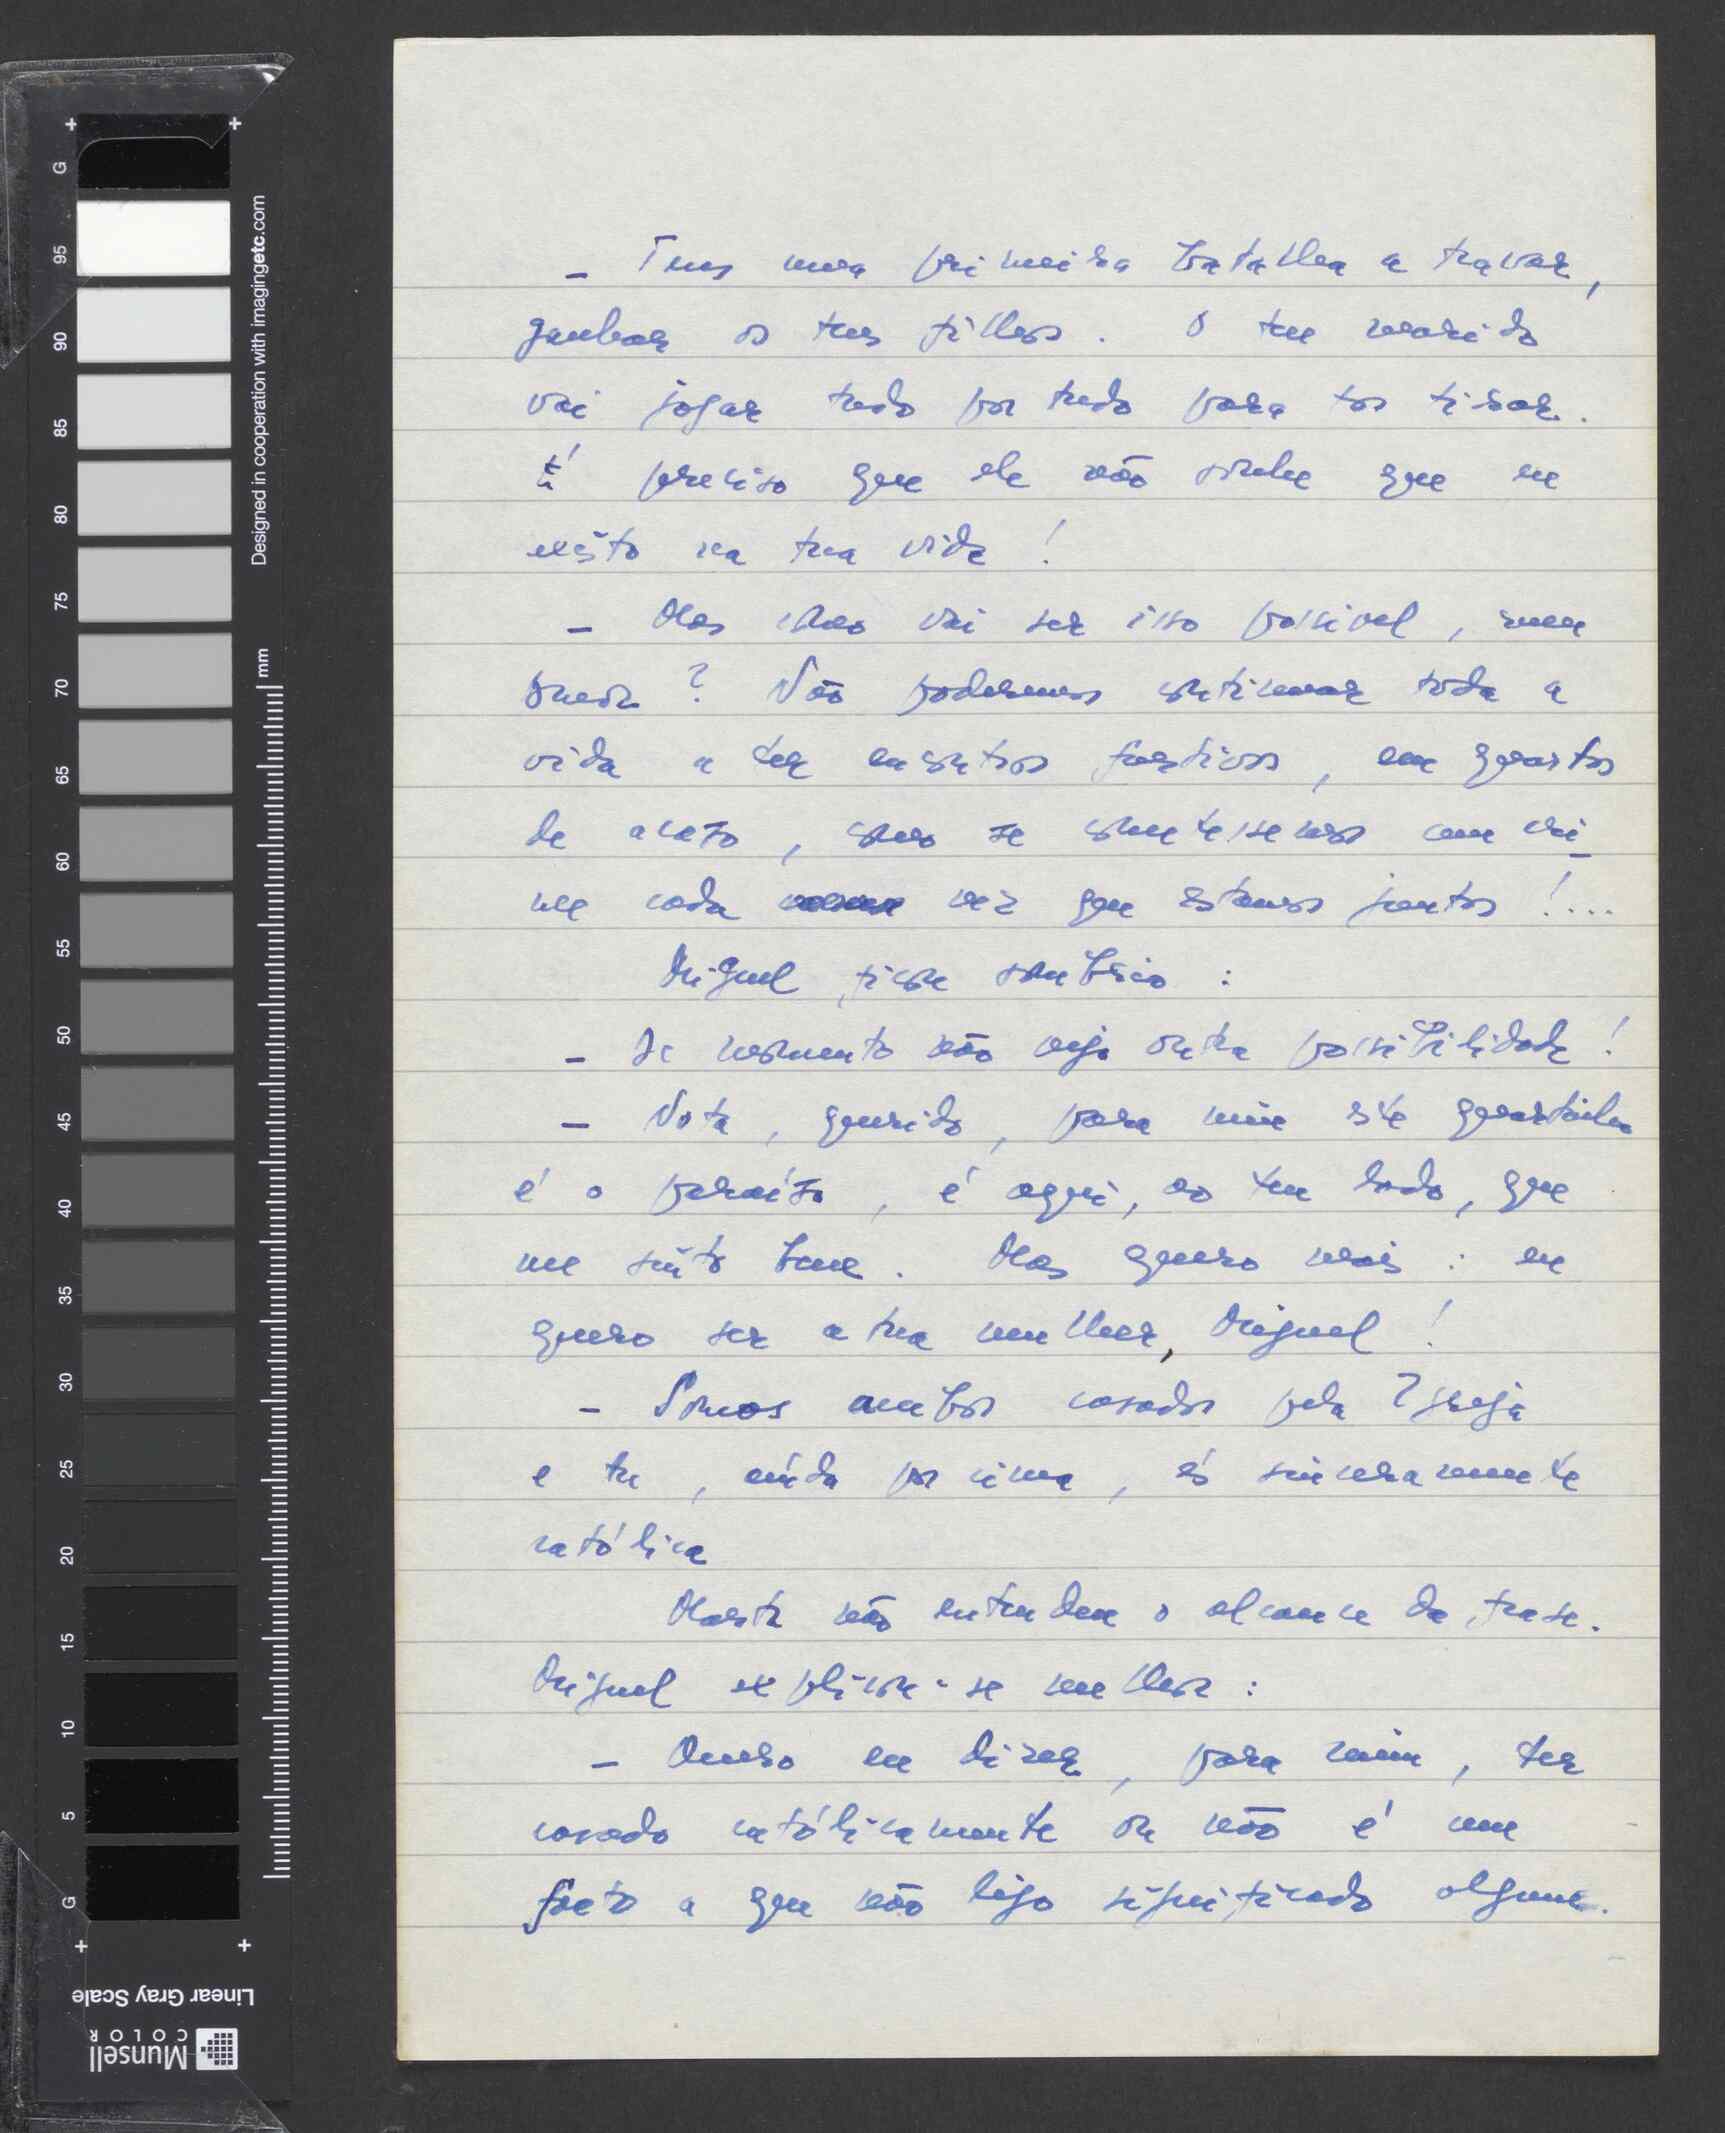 – Tens uma primeira batalha a travar,
ganhar os teus filhos. O teu marido
vai jogar tudo por tudo para tos tirar.
É preciso que ele não sonhe que eu
existo na tua vida!
– Mas como vai ser isso possível, meu
amor? Não podemos continuar toda a
vida a ter encontros furtivos, em quartos
de acaso, como se cometessemos um cri-
me cada vez que estamos juntos!...
Miguel ficou sombrio:
– De momento não vejo outra possibilidade!
– Nota, querido, para mim este quartinho
é o paraíso, é aqui, ao teu lado, que
me sinto bem. Mas quero mais: eu
quero ser a tua mulher, Miguel!
– Somos ambos casados pela Igreja
e tu, ainda por cima, és sinceramente
católica
não entendeu o alcance da frase.
Miguel explicou-se melhor:
– Quero eu dizer, para mim, ter
casado católicamente ou não é um
facto a que não ligo significado algum.
Designed in cooperation with imagingetc.com
mm
G 95 90 85 80 75 70 65 60 55 50 45 40 35 30 25 20 15 10 5 G
Linear Gray Scale
Munsell
COLOR